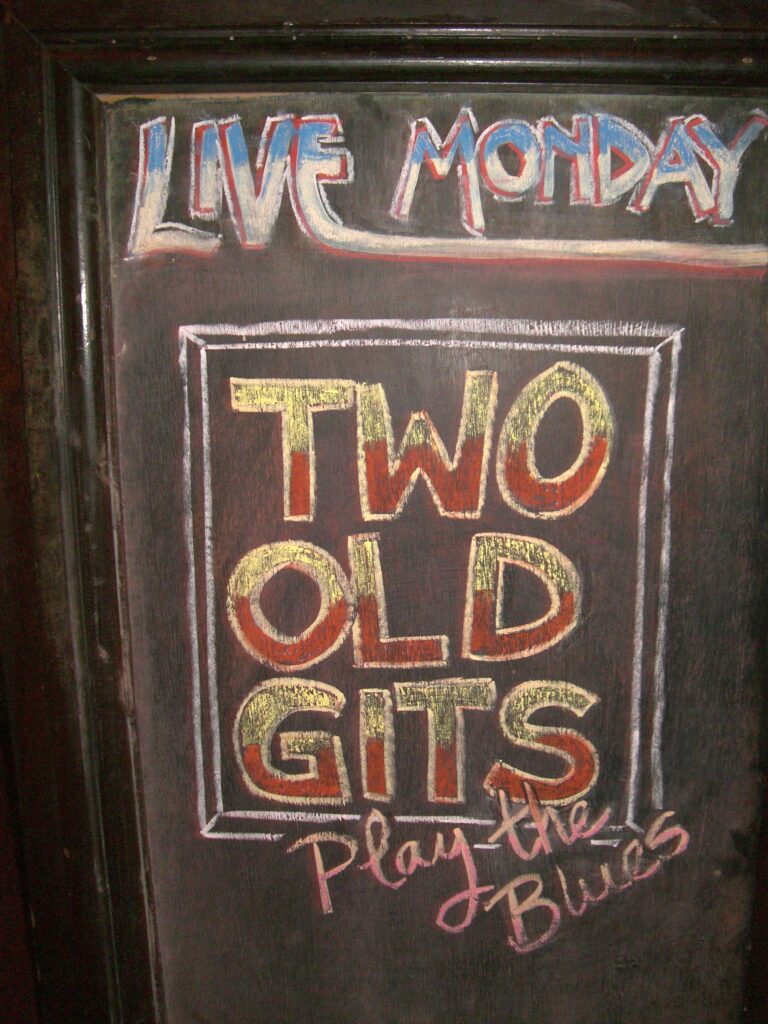 LIVE MONDAY
TWO
OLD
GITS
Play the
Blues